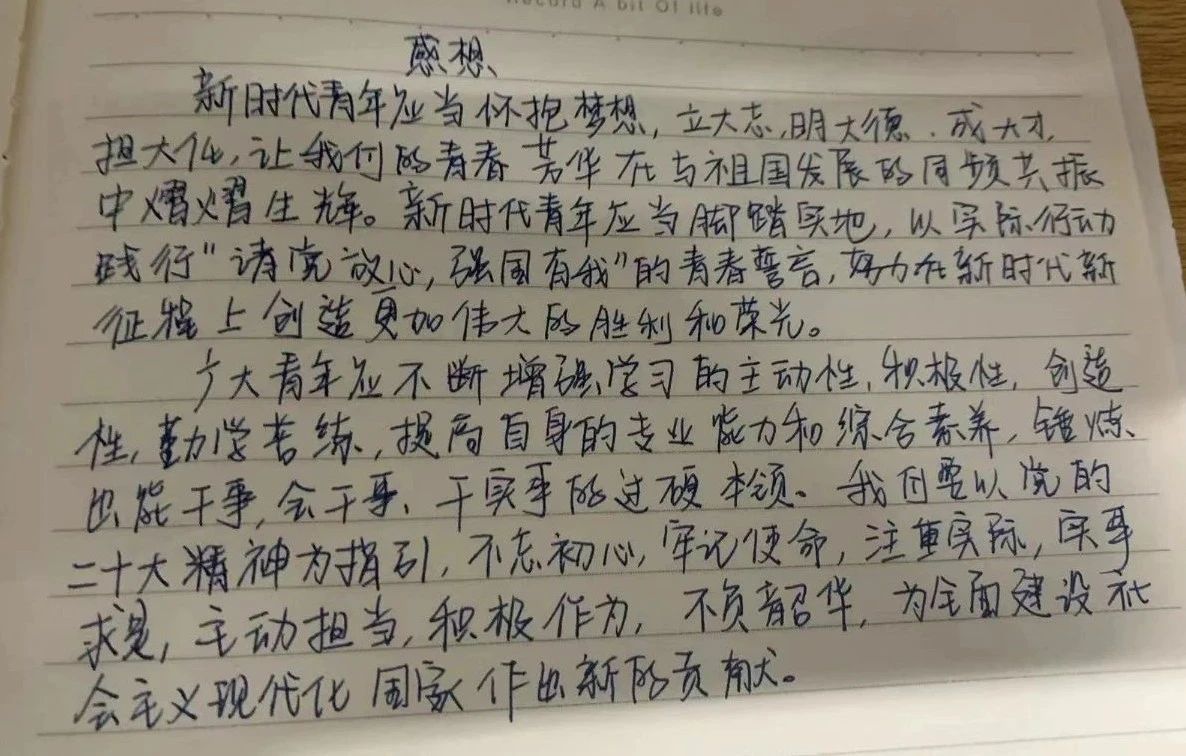 Record A bit Of life
感想
新时代青年应当怀抱梦想,立大志,明大德、成大才、
担大任,让我们的青春芳华在与祖国发展的同频共振
中熠熠生辉。新时代青年应当脚踏实地,以实际行动
践行"请党放心,强国有我"的青春誓言,努力在新时代新
征程上创造更加伟大的胜利和荣光。
广大青年应不断增强学习的主动性,积极性,创造
性,勤学苦练,提高自身的专业能力和综合素养,锤炼
出能干事,会干事、干实事的过硬本领。我们要以党的
二十大精神为指引,不忘初心,牢记使命,注重实际,实事
求是,主动担当,积极作为,不负韶华,为全面建设社
会主义现代化国家作出新的贡献。